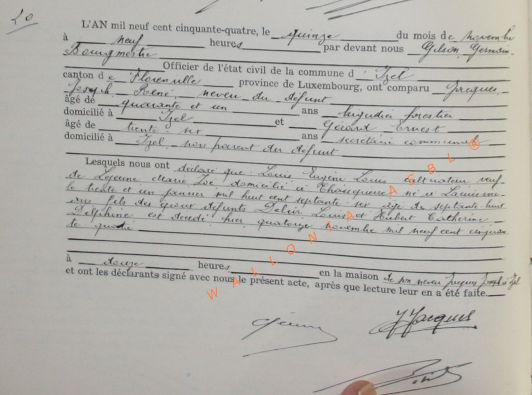 20
L'AN mil neuf cent cinquante-quatre, le quinze du mois de Novembre
à neuf heures par devant nous Gilson Germain
Bourgmestre Officier de l'état civil de la commune d'Izel
canton de Florenville province de Luxembourg, ont comparu Jacques
Joseph René, neveu du défunt
âgé de quarante et un ans
domicilié à Izel et Gérard Ernest
âgé de trente six ans secrétaire communal
domicilié à Izel, non parent du défunt
Lesquels nous ont déclaré que Louis Eugène Louis cultivateur veuf
de Lejeune Marie domicilié à né à
le trente et un janvier mil huit cent septante six âgé de septante huit
ans fils des époux défunts Louis et Hubert Catherine
Delphine est décédé hier, quatorze novembre mil neuf cent cinquante
quatre
à douze heures en la maison de son neveu Jacques Joseph à Izel
et ont les déclarants signé avec nous le présent acte, après que lecture leur en a été faite.
WALLONIA ASBL ©
Jacques